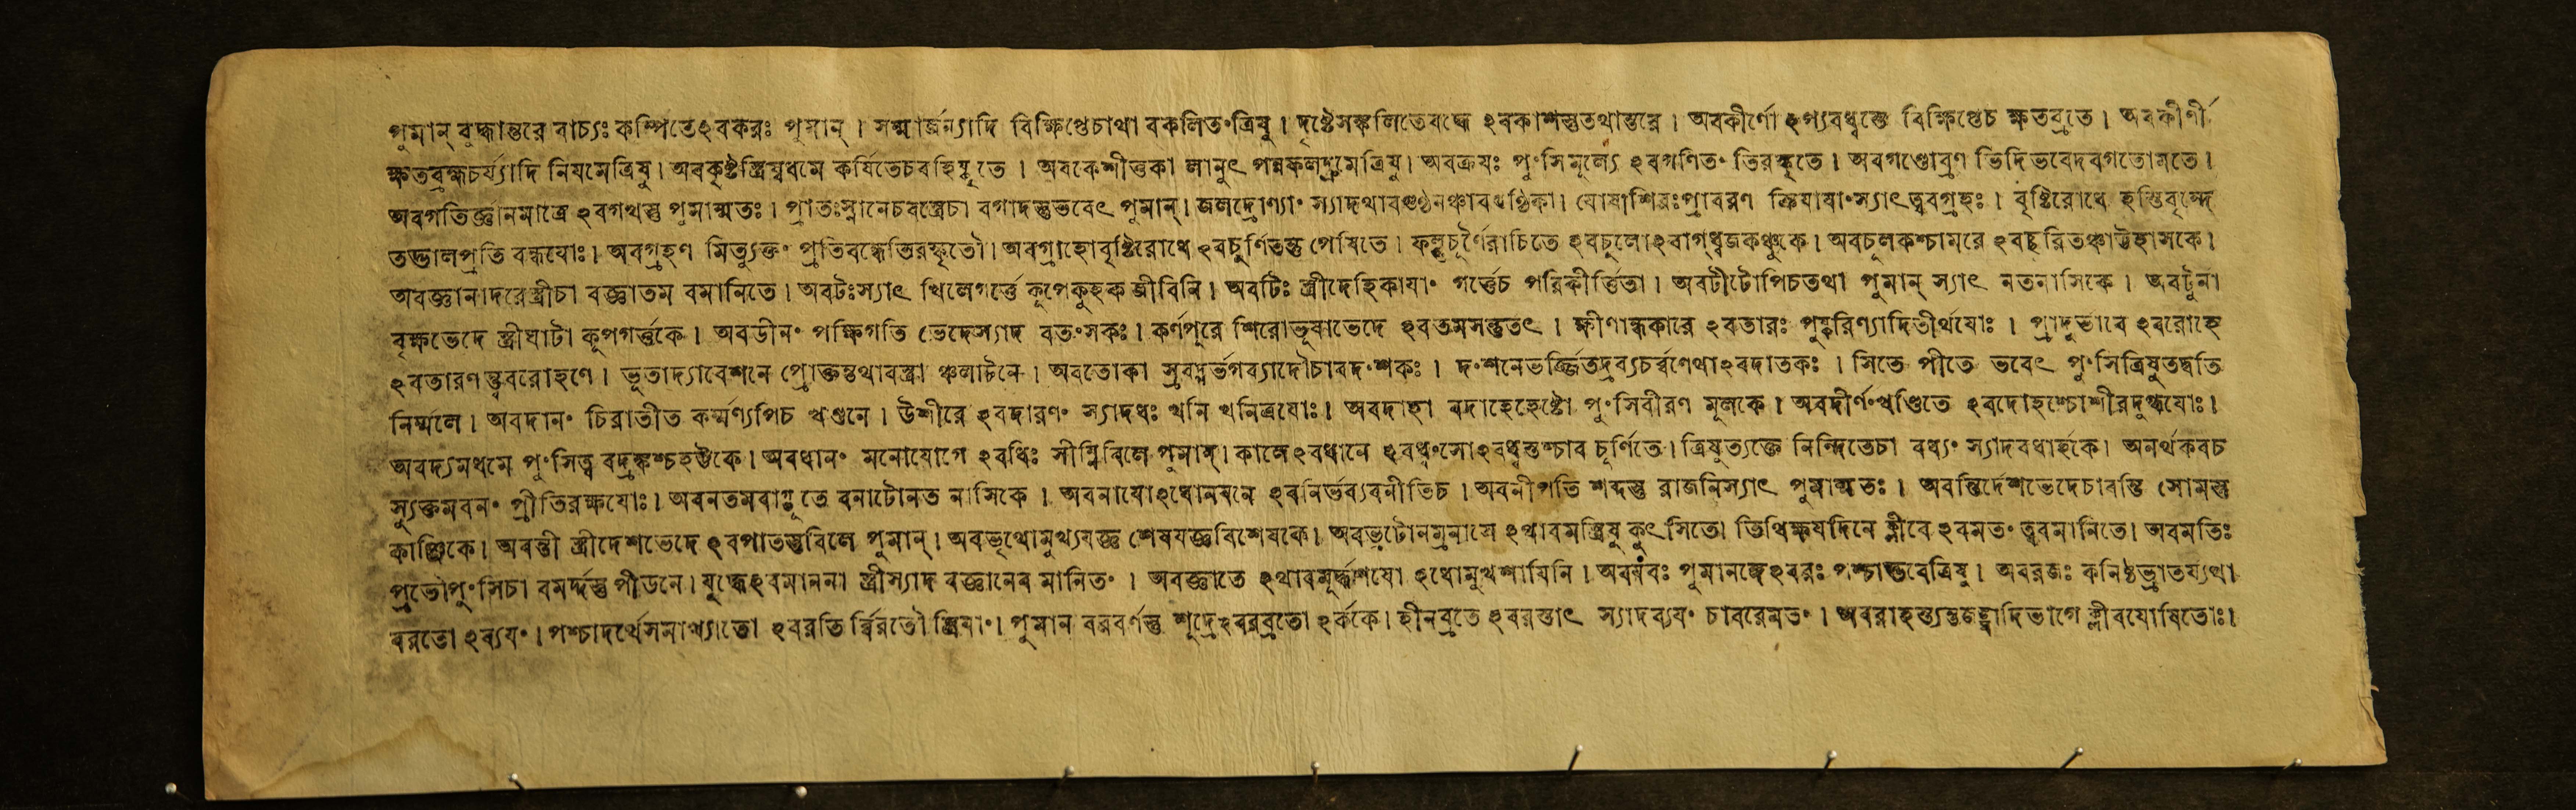 পুমান্ বুদ্ধ্যান্তরে বাচ্যঃ কম্পিতেঽবকরঃ পুমান্ । সম্মার্জন্যাদি বিক্ষিপ্তেচাথা বকলিতংত্রিষু । দৃষ্টেসঙ্কলিতেবদ্ধে ঽবকাশস্তুতথান্তরে । অবকীর্ণো ঽপ্যবধ্বস্তে বিক্ষিপ্তেচ ক্ষতব্রতে । অবকীর্ণী
ক্ষতব্রহ্মচর্য্যাদি নিযমেত্রিষু । অবকৃষ্টস্ত্রিষ্বধমে কর্ষিতেচবহিষ্কৃতে । অবকেশীত্তকা লানুৎ পন্নফলদ্রুমেত্রিষু । অবক্রযঃ পুংসিমূল্যে ঽবগণিতং তিরস্কৃতে । অবগণ্ডোব্রণ ভিদিভবেদবগতোমতে ।
অবগতির্জ্ঞানমাত্রে ঽবগথস্তু পুমান্মতঃ । প্রাতঃস্নানেচবস্ত্রেচা বগাদস্তুভবেৎ পুমান্ । জলদ্রোণ্যাং স্যাদথাবগুণ্ঠনঞ্চাবগুণ্ঠিকা । যোষাশিরঃপ্রাবরণ ক্রিযাযাংস্যাৎত্ববগ্রহঃ । বৃষ্টিরোধে হস্তিবৃন্দে
তদ্ভালপ্রতি বন্ধযোঃ । অবগ্রহণ মিত্যুক্তং প্রতিবন্ধেতিরস্কৃতৌ । অবগ্রাহোবৃষ্টিরোধে ঽবচূর্ণিতন্তু পেষিতে । ফল্গুচূর্ণৈরাচিতে ঽবচুলোঽবাগ্ধ্বজকঞ্চুকে । অবচূলকশ্চামরে ঽবচ্ছুরিতঞ্চাট্টহাসকে ।
অবজ্ঞানাদরেস্ত্রীচা বজ্ঞাতম বমানিতে । অবটঃস্যাৎ খিলেগর্ত্তে কূপেকুহক জীবিনি । অবটিঃ স্ত্রীদেহিকাযাং গর্ত্তেচ পরিকীর্ত্তিতা । অবটীটোপিচতথা পুমান্ স্যাৎ নতনাসিকে । অবটুনা
বৃক্ষভেদে স্ত্রীঘাটা কূপগর্ত্তকে । অবডীনং পক্ষিগতি ভেদেস্যাদ বতংসকঃ । কর্ণপূরে শিরোভূষাভেদে ঽবতমসন্তুতৎ । ক্ষীণান্ধকারে ঽবতারঃ পুষ্করিণ্যাদিতীর্থযোঃ । প্রাদুভাবে ঽবরোহে
ঽবতারণ ন্ত্ববরোহণে । ভূতাদ্যাবেশনে প্রোক্তন্তথাবস্ত্রা ঞ্চলার্চনে । অবতোকা স্রবদ্গর্ভগব্যাদৌচাবদংশকঃ । দংশনেভর্জ্জিতদ্রব্যচর্ব্বণেথাঽবদাতকঃ । সিতে পীতে ভবেৎ পুংসিত্রিষুতদ্বতি
নির্ম্মলে । অবদানং চিরাতীত কর্ম্মণ্যপিচ খণ্ডনে । উশীরে ঽবদারণং স্যাদধঃ খনি খনিত্রযোঃ । অবদাহা বদাহেহেষ্টো পুংসিবীরণ মূলকে । অবদীর্ণংখণ্ডিতে ঽবদোহশ্চোশীরদুগ্ধযোঃ ।
অবদ্যমধমে পুংসিত্ব বদ্রঙ্কশ্চহট্টকে । অবধানং মনোযোগে ঽবধিঃ সীম্নিবিলে পুমান্ । কালেঽবধানে ঽবধ্বংসোঽবধ্বস্তশ্চাব চূর্ণিতে । ত্রিষুত্যক্তে নিন্দিতেচা বধ্যং স্যাদবধার্হকে । অনর্থকবচ
স্যুক্তমবনং প্রীতিরক্ষযোঃ । অবনতমবাগ্ভূতে বনাটোনত নাসিকে । অবনাযোঽধোনযনে ঽবনির্ভুব্যবনীতিচ । অবনীপতি শব্দস্তু রাজনিস্যাৎ পুমান্মতঃ । অবন্তির্দেশভেদেচাবন্তি সোমন্তু
কাঞ্জিকে । অবন্তী স্ত্রীদেশভেদে ঽবপাতস্তুবিলে পুমান্ । অবভৃথোমুখ্যযজ্ঞ শেষযজ্ঞবিশেষকে । অবভ্রটোনম্রনাসে ঽথাবমস্ত্রিষু কুৎসিতে । তিথিক্ষযদিনে ক্লীবে ঽবমতং ত্ববমানিতে । অবমতিঃ
প্রভৌপুংসিচা বমর্দ্দস্তু পীডনে । যুদ্ধেঽবমাননা স্ত্রীস্যাদ বজ্ঞানেব মানিতং । অবজ্ঞাতে ঽথাবমূর্দ্ধশযো ঽধোমুখশাযিনি । পুমানঙ্গেঽবরঃ পশ্চাদ্ভবেত্রিষু । অবরজঃ কনিষ্ঠভ্রাতর্য্যথা
বরতো ঽব্যযং । পশ্চাদর্থেসমাখ্যাতো ঽবরতি র্ব্বিরতৌ স্ত্রিযাং । পুমান বরবর্ণস্তু শূদ্রেঽবরব্রতো ঽর্ককে । হীনব্রতে ঽবরস্তাৎ স্যাদব্যযং চাবরেমতং । অবরাহন্ত্যন্তজঙ্ঘাদিভাগে ক্লীবযোষিতোঃ ।